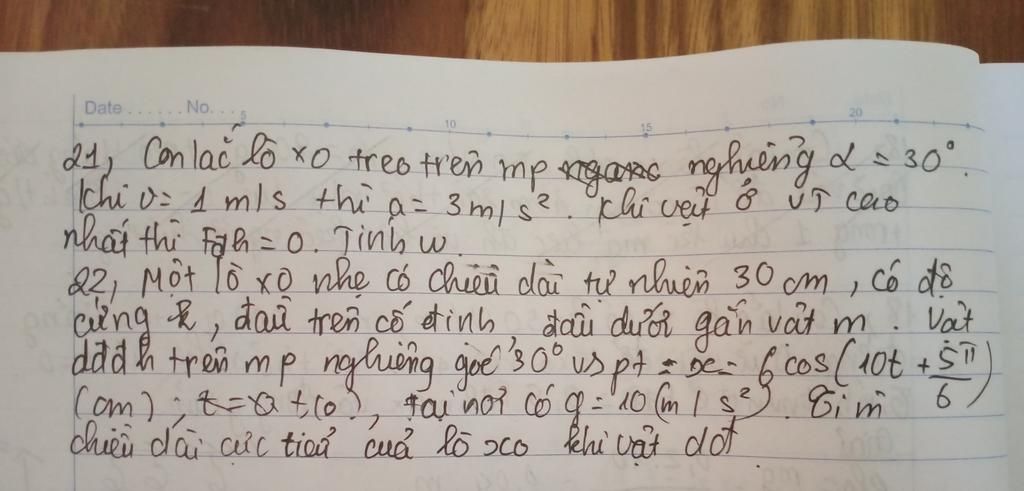 Date ...... No....
5 10 15 20
21, Con lắc lò xo treo trên mp nghiêng α = 30°.
Khi v = 1 m/s thì a = 3 m/s². Khi vật ở VT cao
nhất thì Fđh = 0. Tính w.
22, Một lò xo nhẹ có chiều dài tự nhiên 30 cm, có độ
cứng k, đầu trên cố định đầu dưới gắn vật m. Vật
dđđh trên mp nghiêng góc 30° vs pt = x = 6 cos(10t + 5π/6)
(cm) t(s), tại nơi có g = 10 (m/s²). Tìm
chiều dài cực tiểu của lò xo khi vật dđ